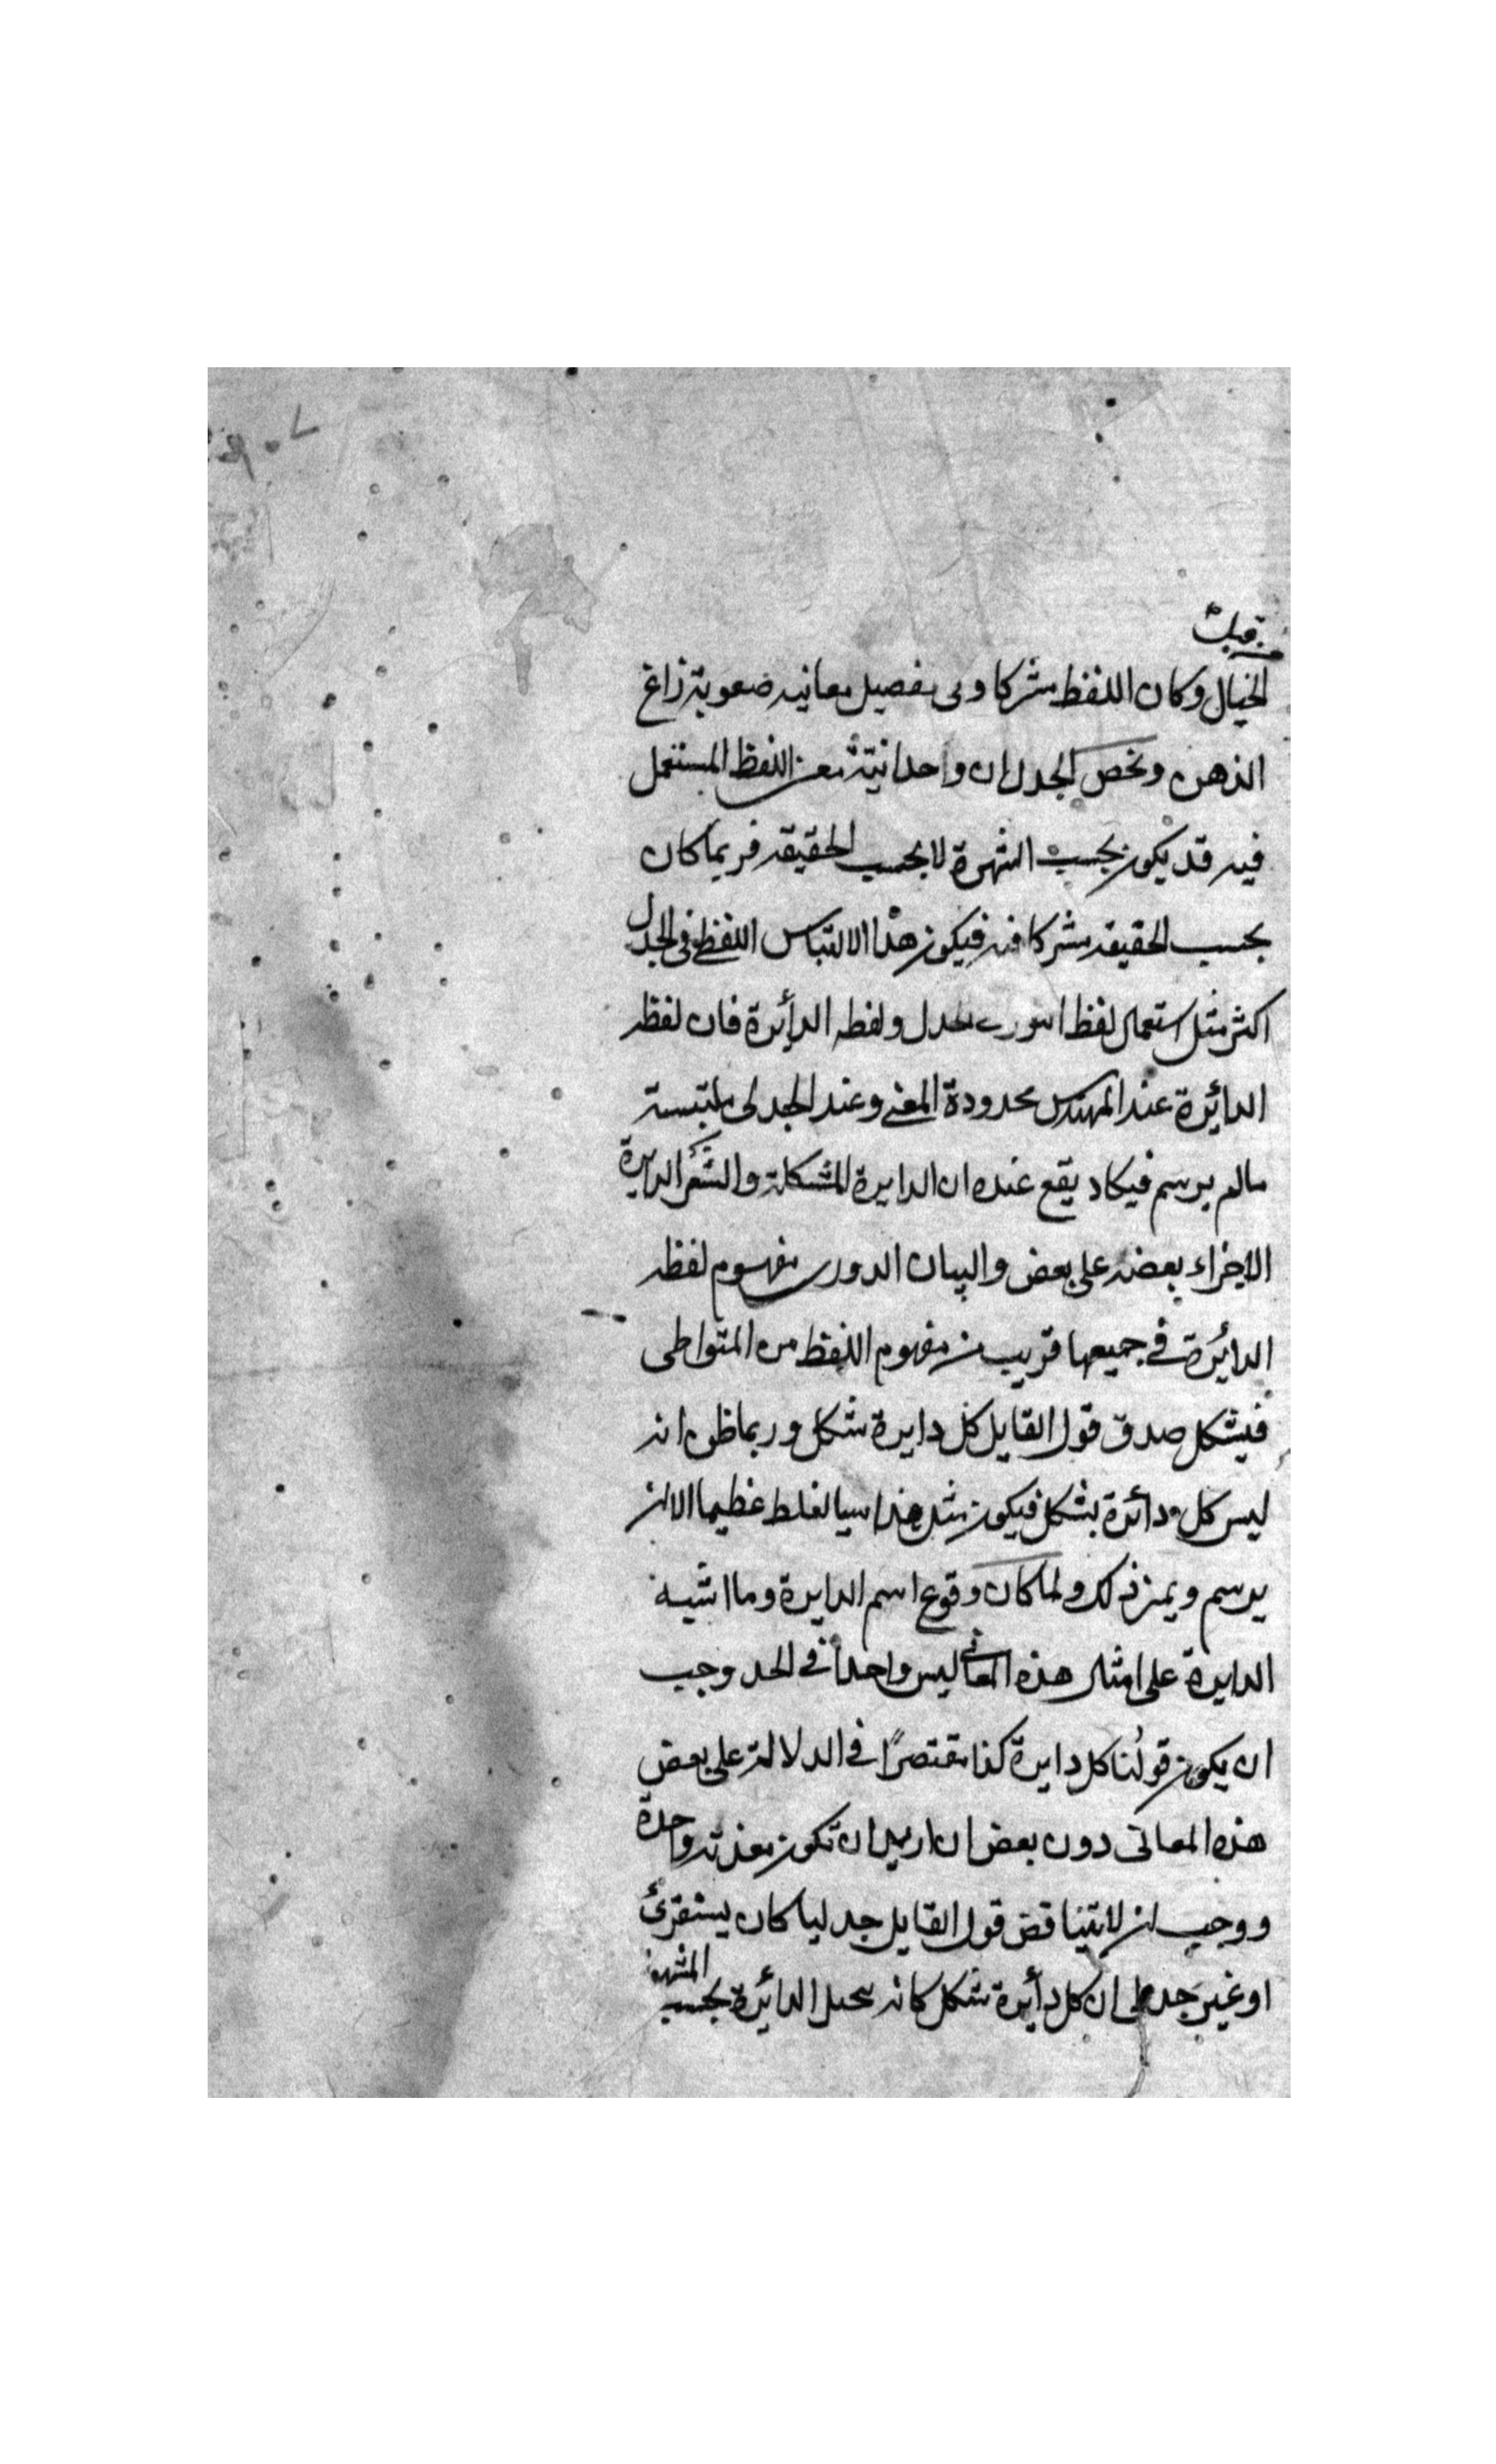 الخيال وكان اللفظ مشتركا وفى تفصيل معانيه صعوبة زاغ
الذهن ونخص الجدل ان واحدانية معنى اللفظ المستعمل
فيه قد يكون بحسب الشهرة لا بحسب الحقيقه فربما كان
بحسب الحقيقه مشتركا فيه فيكون هذا الالتباس اللفظى فى الجدل
اكثر مثل استعمال لفظ الجدل ولفظه الدأئرة فان لفظه
الدائرة عند المهندس محدودة المعنى وعند الجدلى ملتبسة
مالم يرسم فيكاد يقع عنده ان الدايرة المشكلة والشعر الدايرة
الاجزاء بعضه على بعض والبيان الدورى مفهوم لفظه
الدائرة فى جميعها قريب من مفهوم اللفظ من المتواطى
فيشكل صدق قول القايل كل دايرة شكل وربما ظن انه
ليس كل دأئرة بشكل فيكون مثل هذا سببا لغلط عظيم الا ان
يرسم ويميز ذلك ولما كان وقوع اسم الدايرة وما اشبه
الدايرة على امثال هذه المعانى ليس واحدا فى الحد وجب
ان يكون قولنا كل دايرة كذا مقتصرًا فى الدلالة على بعض
هذه المعانى دون بعض ان اريد ان تكون مقدمة واحدة
ووجب ان لا يتناقض قول القايل جدليا كان يستقرئ
او غير جدلى ان كل دأيرة شكل كانه يجعل الدائرة بحسب المشهور